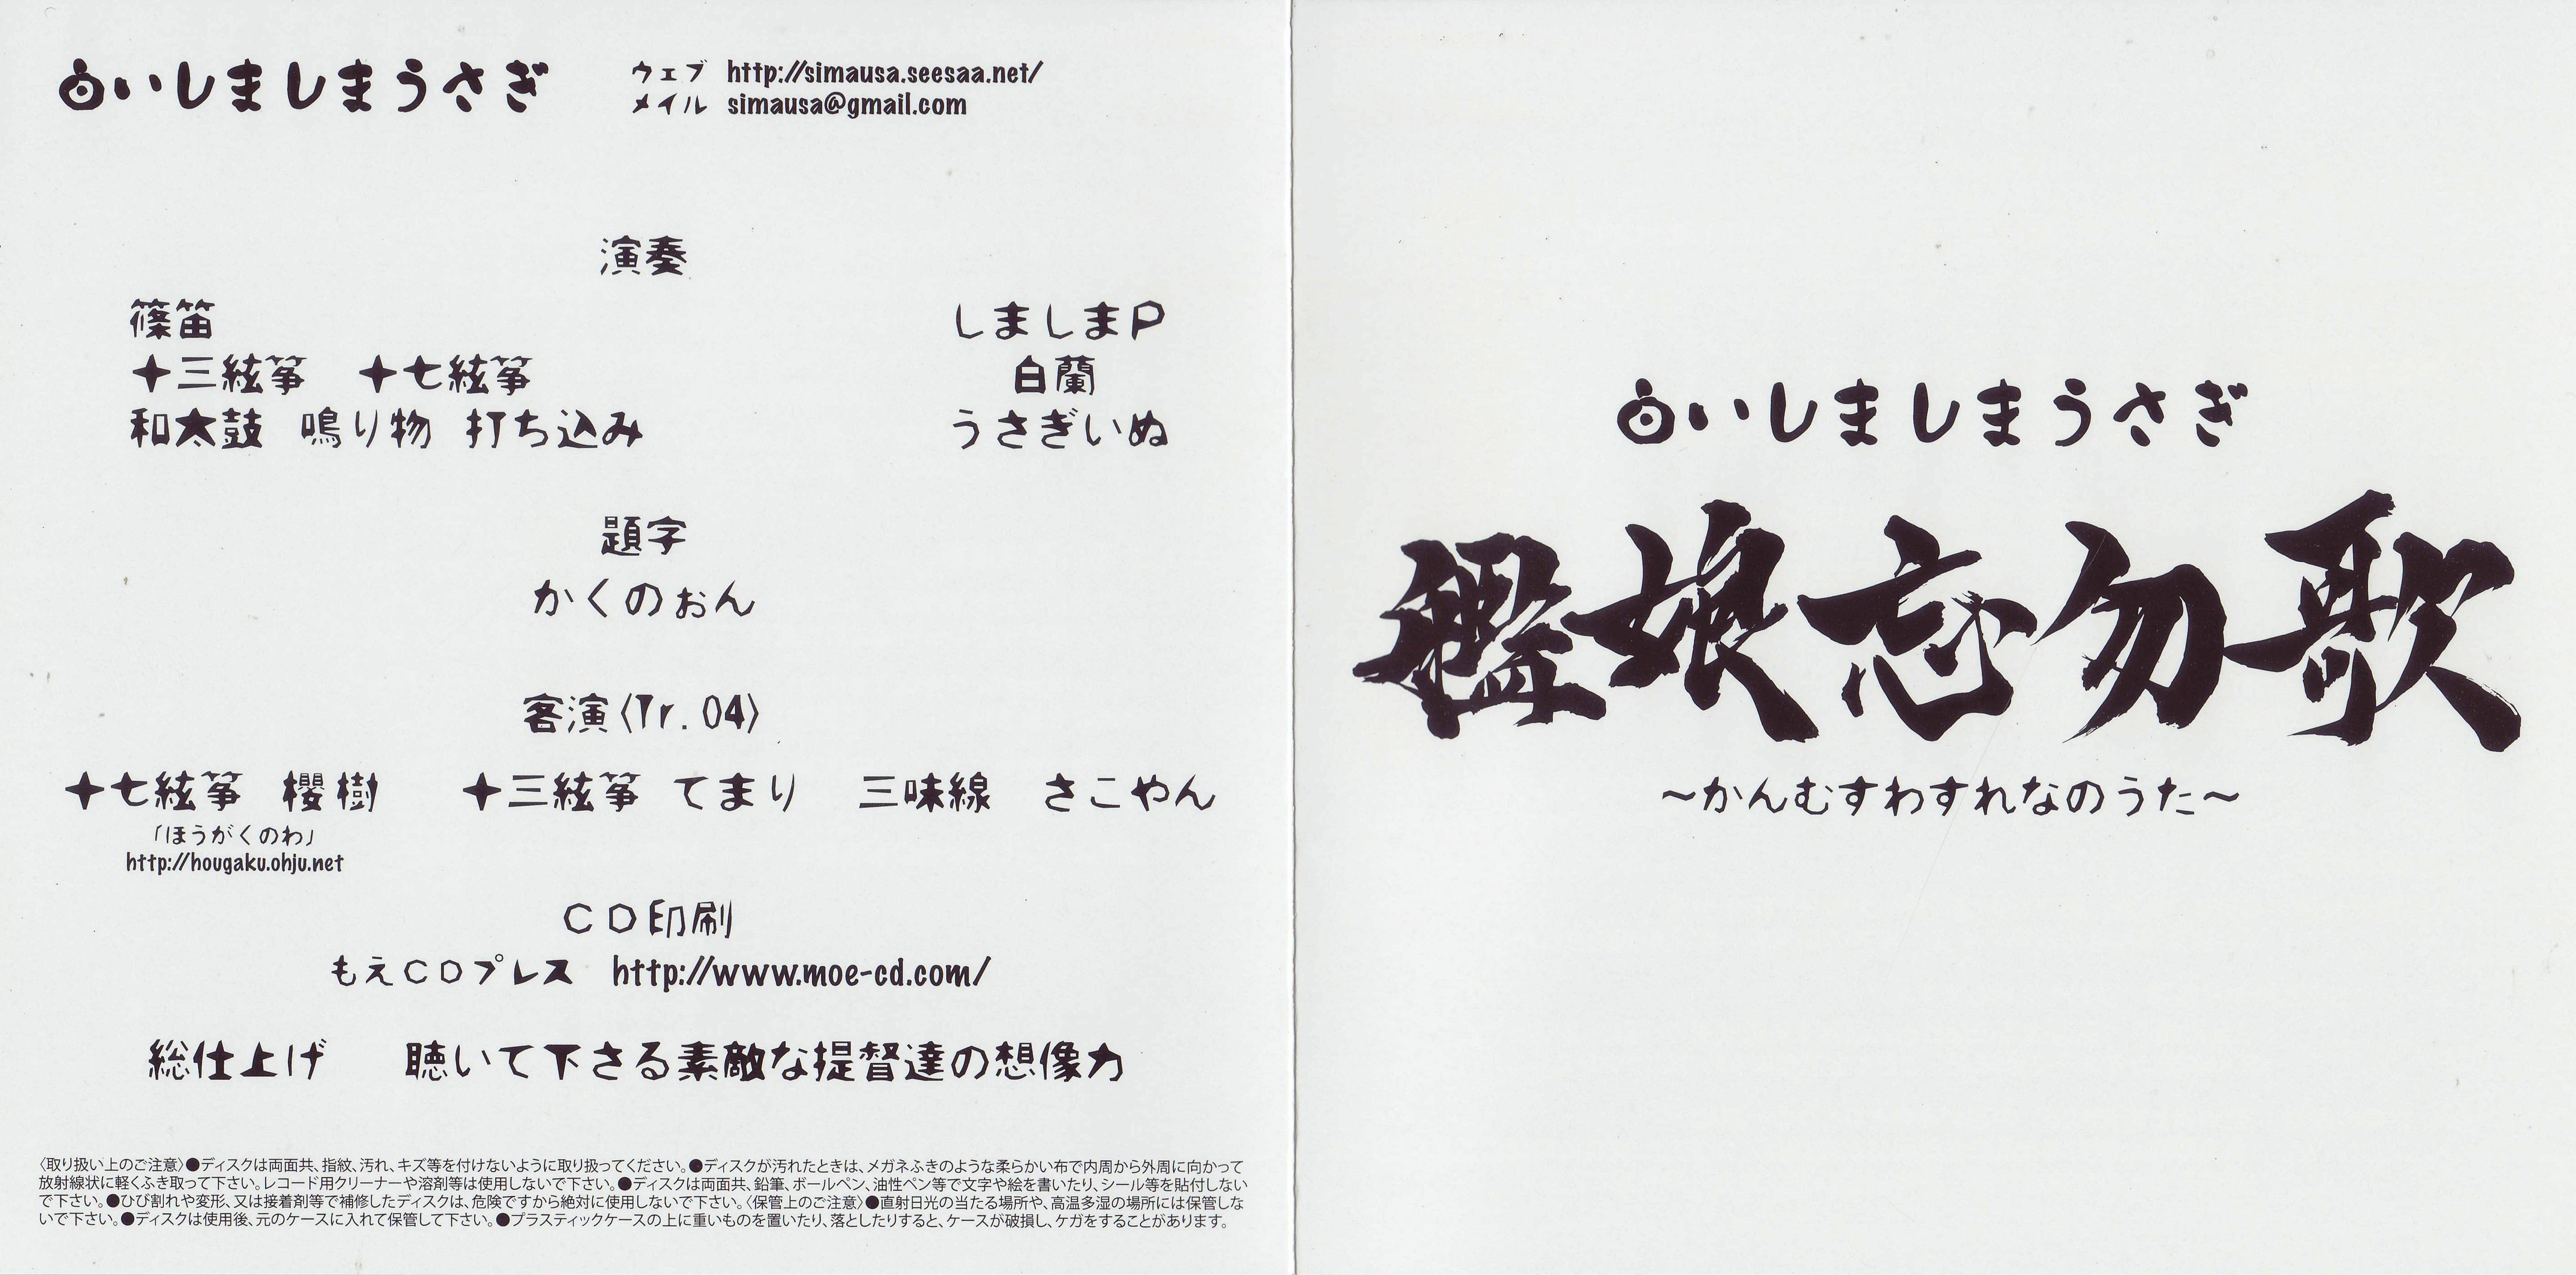 白いしましまうさぎ
ウェブ http://simausa.seesaa.net/
メイル simausa@gmail.com
演奏
篠笛 しましまP
十三絃箏 十七絃箏 白蘭
和太鼓 鳴り物 打ち込み うさぎいぬ
題字
かくのぉん
客演〈Tr.04〉
十七絃箏 櫻樹 十三絃箏 てまり 三味線 さこやん
「ほうがくのわ」
http://hougaku.ohju.net
CD印刷
もえCDプレス http://www.moe-cd.com/
総仕上げ 聴いて下さる素敵な提督達の想像力
〈取り扱い上のご注意〉●ディスクは両面共、指紋、汚れ、キズ等を付けないように取り扱ってください。●ディスクが汚れたときは、メガネふきのような柔らかい布で内周から外周に向かって
放射線状に軽くふき取って下さい。レコード用クリーナーや溶剤等は使用しないで下さい。●ディスクは両面共、鉛筆、ボールペン、油性ペン等で文字や絵を書いたり、シール等を貼付しない
で下さい。●ひび割れや変形、又は接着剤等で補修したディスクは、危険ですから絶対に使用しないで下さい。〈保管上のご注意〉●直射日光の当たる場所や、高温多湿の場所には保管しな
いで下さい。●ディスクは使用後、元のケースに入れて保管して下さい。●プラスティックケースの上に重いものを置いたり、落としたりすると、ケースが破損し、ケガをすることがあります。
白いしましまうさぎ
艦娘忘勿歌
～かんむすわすれなのうた～